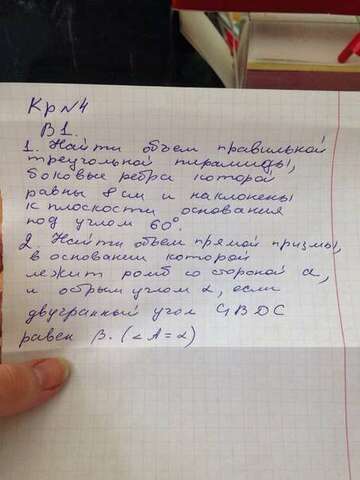 Кр №4
В1.
1. Найти объем правильной
треугольной пирамиды,
боковые ребра которой
равны 8 см и наклонены
к плоскости основания
под углом 60°.
2. Найти объем прямой призмы,
в основании которой
лежит ромб со стороной a,
и острым углом α, если
двугранный угол C₁BDC
равен β. (∠A=α)